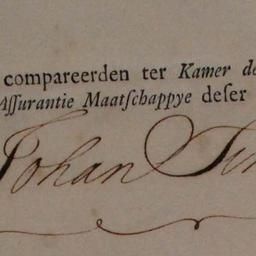 compareerden ter Kamer de
Aſſurantie Maatſchappye deſer
Johan